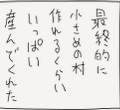 最終的に
小さめの村
作れるくらい
いっぱい
産んでくれた